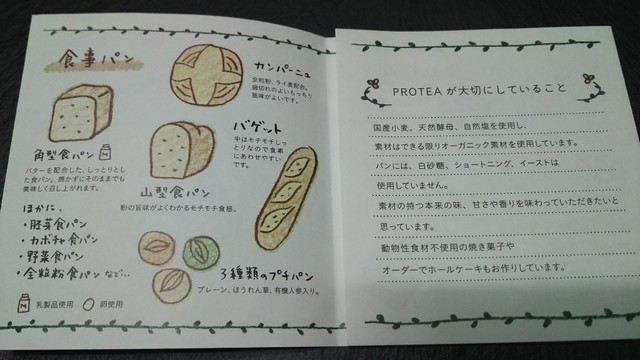 食事パン
カンパーニュ
全粒粉、ライ麦配合。
歯切れのよいもっちり
風味がよいです。
角型食パン
バターを配合した、しっとりとし
た食パン。焼かずにそのままでも
美味しく召し上がれます。
山型食パン
粉の旨味がよくわかるモチモチ食感。
バゲット
中はモチモチしっ
とりなので食事
にあわせやすい
です。
ほかに、
・胚芽食パン
・カボチャ食パン
・野菜食パン
・全粒粉食パン など…
3種類のプチパン
プレーン、ほうれん草、有機人参入り。
乳製品使用 卵使用
PROTEA が大切にしていること
国産小麦、天然酵母、自然塩を使用し、
素材はできる限りオーガニック素材を使用しています。
パンには、白砂糖、ショートニング、イーストは
使用していません。
素材の持つ本来の味、甘さや香りを味わっていただきたいと
思っています。
動物性食材不使用の焼き菓子や
オーダーでホールケーキもお作りしています。